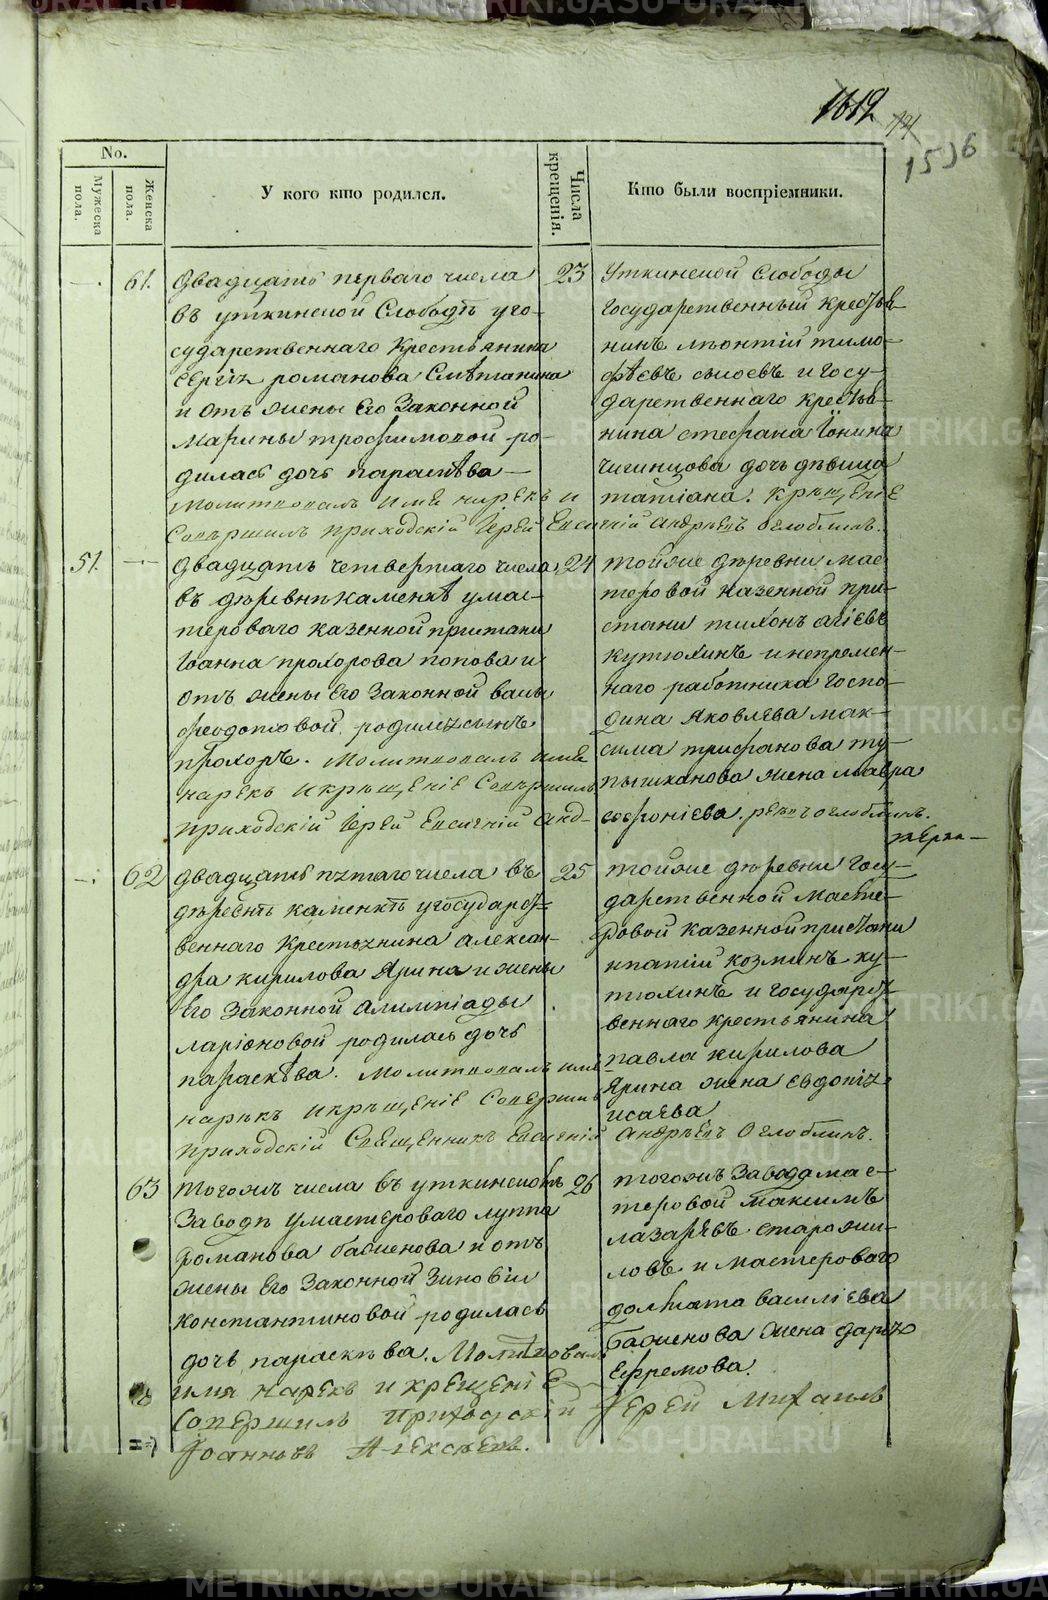 METRIKI.GASO-URAL.RU
1612
1536
No.
Мужеска пола.
Женска пола.
У кого кто родился.
Числа крещенія.
Кто были воспріемники.
61.
Двадцать перваго числа
въ уткинской Слободѣ уго-
сударственнаго Крестьянина
Сергія романова Смѣтанина
и отъ жены Его Законной
Марины трофимовой ро-
дилась дочь параскѣва
молитвовалъ имя нарекъ и
Совершилъ приходскій Іерей Евсигній андреевъ оглоблинъ.
23
Уткинской Слободы
Государственный крестья-
нинъ леонтій тимо-
фѣевъ сысоевъ и госу-
дарственнаго крестья-
нина стефана Іонина
чигинцова дочь дѣвица
татіана. крещенІе
51.
двадцать четвертаго числа
въ деревнѣ каменкѣ умас-
тероваго казенной пристани
Іоанна прохорова попова и
отъ жены Его Законной вассы
феодотовой родился сынъ
прохоръ. Молитвовалъ имя
нарекъ и крещенІе Совершилъ
приходскій Іерей Евсигній анд-
24
тойже деревни мас-
теровой казенной при-
стани тихонъ агіевъ
кутюхинъ и непремен-
наго работника Госпо-
дина Яковлева мак-
сима трифанова ту-
пышканова жена мавра
софоніева. реевъ оглоблинъ.
62
двадцать пятаго числа въ
деревнѣ каменкѣ угосударст-
веннаго крестьянина алексан-
дра кирилова Ярина и жены
Его Законной алимпіады
ларіоновой родилась дочь
параскѣва. Молитвовалъ имя
нарекъ и крещенІе Совершилъ
приходскій Священникъ Евсигній
андреевъ Оглоблинъ.
25
тойже деревни госу-
дарственной масте-
ровой казенной пристани
ипатій козминъ ку-
тюхинъ и государст-
веннаго крестьянина
павла кирилова
Ярина жена евдокія
исаева
63
тогожъ числа въ уткинскомъ
Заводѣ умастероваго луппа
романова бабенова и отъ
жены Его Законной Зиновіи
константиновой родилась
дочь параскѣва. Молитвовалъ
имя нарекъ и крещеніЕ
Совершилъ приходскій Іерей Михаилъ
Іоанновъ Алексѣевъ.
26
тогожъ Завода мас-
теровой максимъ
лазаревъ старожи-
ловъ и мастероваго
долмата василіева
бабенова жена дарья
Ефремова.